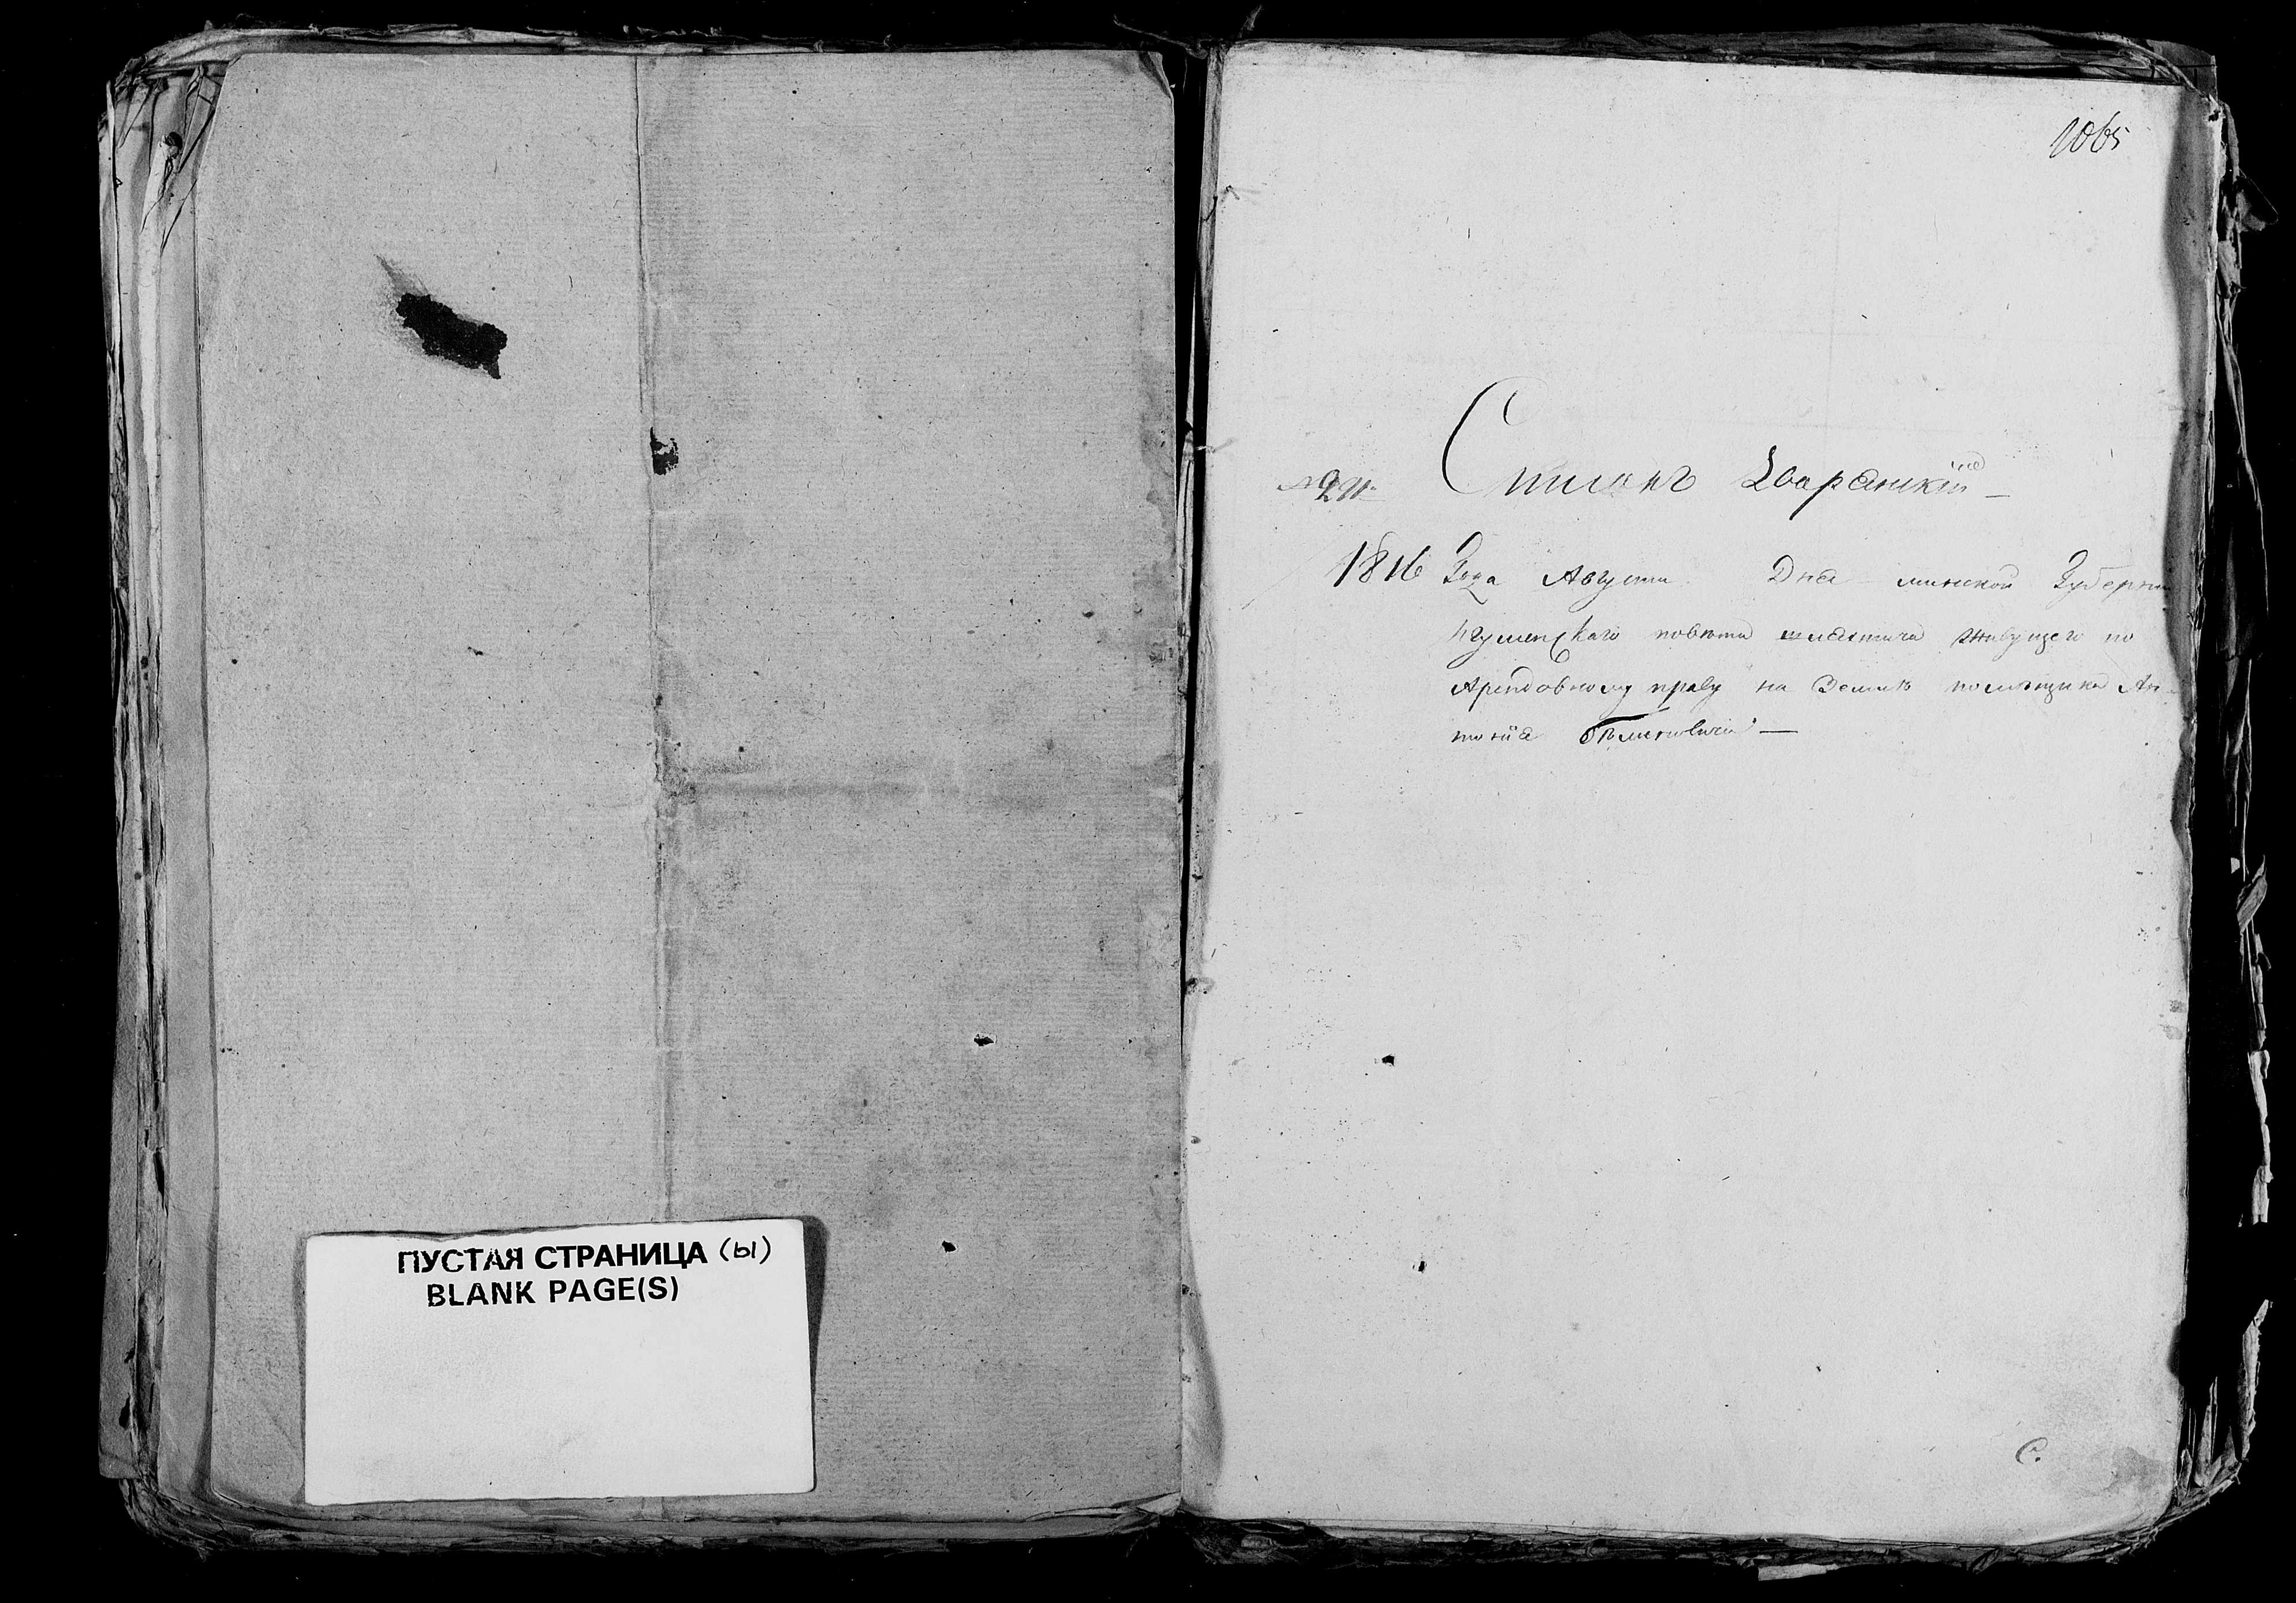 ПУСТАЯ СТРАНИЦА (ы)
BLANK PAGE(S)
1065
Списокъ
1816 Года Августа Дня минской Губерни
Игуменскаго повѣта шляхтича живущего по
Арендовному праву на Землѣ помѣщика Ан-
тонія
С.